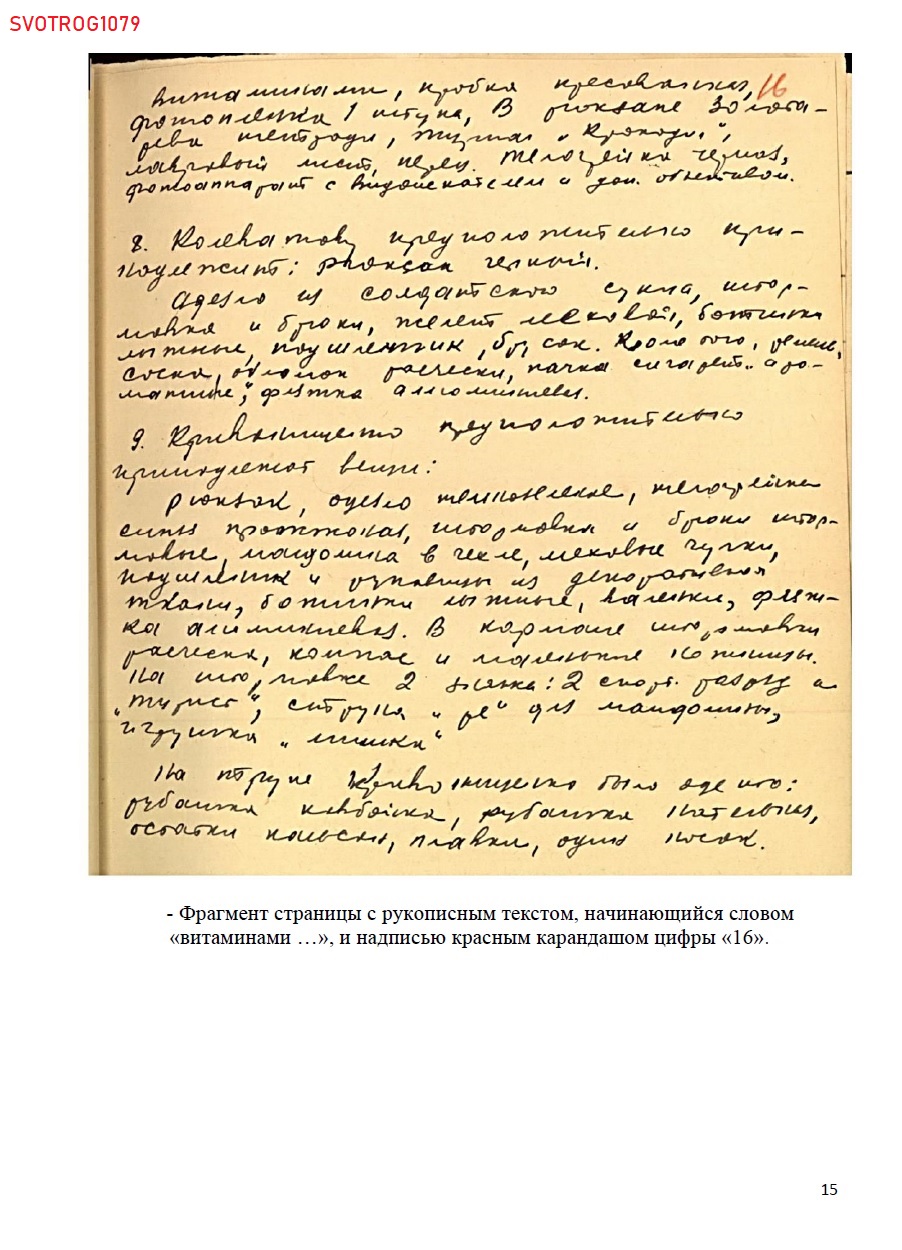 SVOTROG1079
16
витаминами, пробка пресованная,
фотопленка 1 штука, В рюкзаке Золота-
рева тетради, журнал „Крокодил",
лавровый лист, перец. Телогрейка черная,
фотоаппарат с видоискателем и доп. объективом.
8. Колеватову предположительно при-
надлежит: рюкзак черный.
Одеяло из солдатского сукна, штор-
мовка и брюки, жилет меховой, ботинки
лыжные, подшлемник, брусок. Кроме того,
соска, обломок расчески, пачка сигарет „аро-
матные", фляжка алюминиевая.
9. Кривонищенко предположительно
принадлежат вещи:
рюкзак, одеяло темнозеленое, телогрейка
синяя прожжоная, штормовка и брюки штор-
мовые, мандолина в чехле, меховые чулки,
подшлемник и рукавицы из декоративной
ткани, ботинки лыжные, валенки, фляж-
ка алюминиевая. В кармане штормовки
расческа, компас и маленькие ножницы.
На штормовке 2 значка: 2 спорт. разряд и
„Турист", струна „ре" для мандолины,
игрушка „мишка"
На трупе Кривонищенко было одето:
рубашка ковбойка, рубашка нательная,
остатки кальсон, плавки, один носок.
- Фрагмент страницы с рукописным текстом, начинающийся словом
«витаминами …», и надписью красным карандашом цифры «16».
15